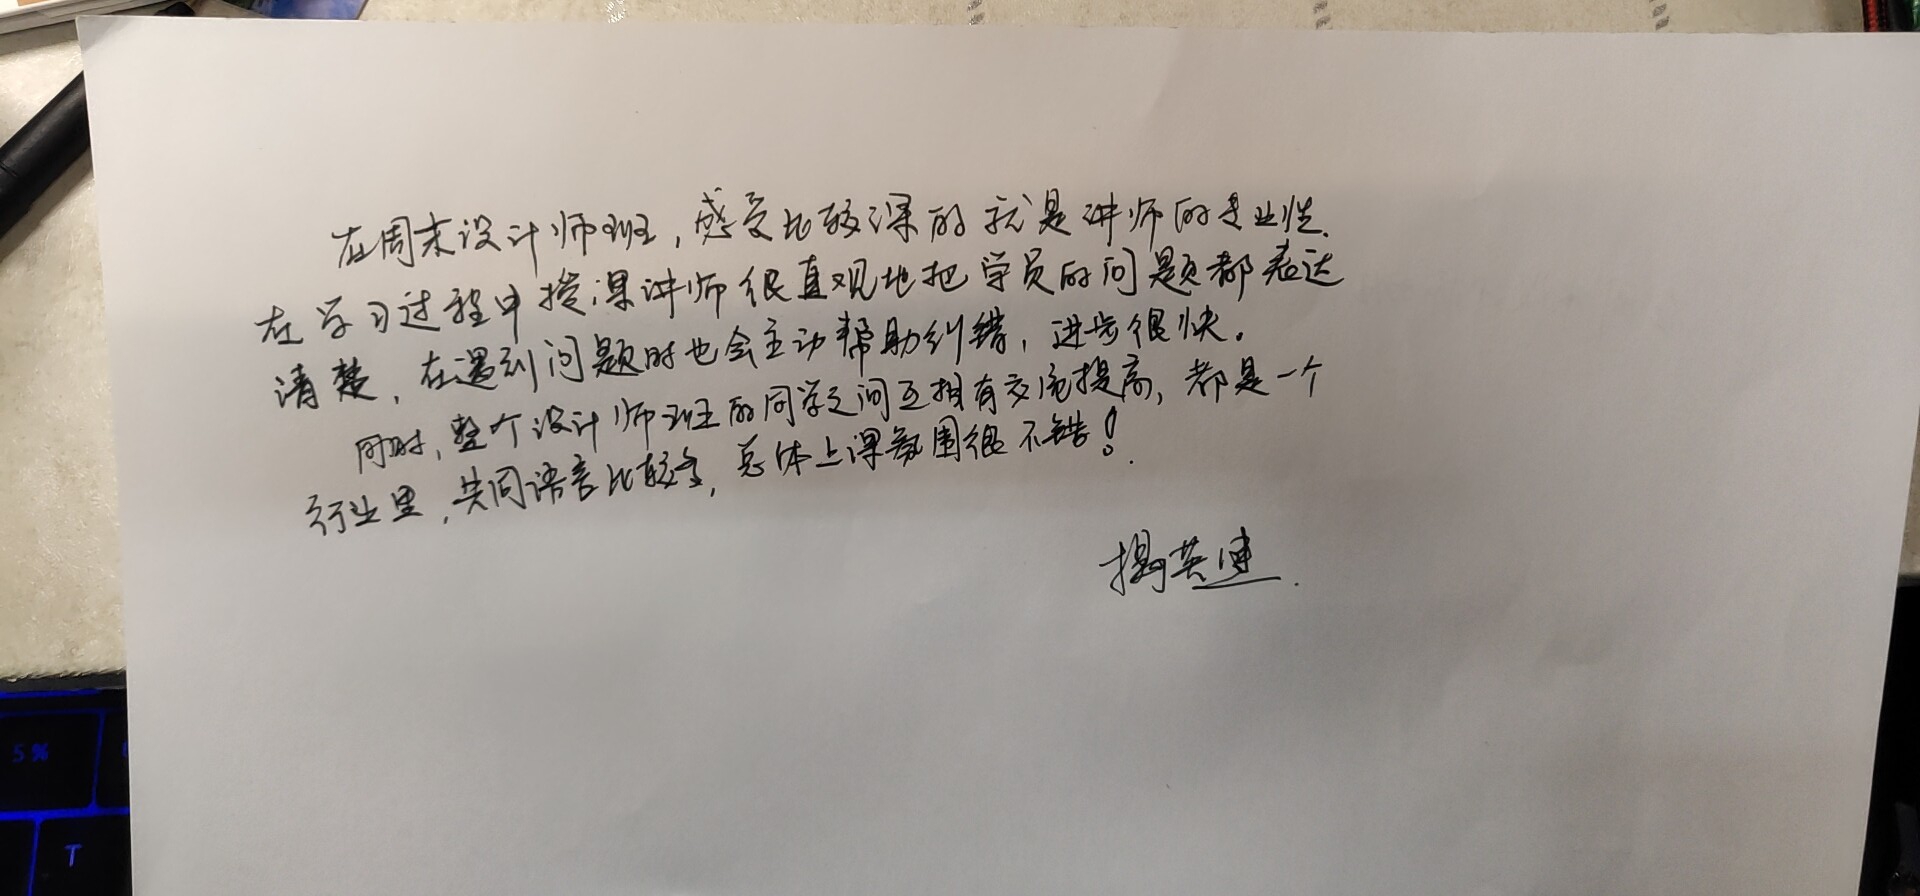 在周末设计师班,感受比较深的就是讲师的专业性.
在学习过程中授课讲师很直观地把学员的问题都表达
清楚,在遇到问题时也会主动帮助纠错,进步很快。
同时,整个设计师班的同学之间互相有交流提高,都是一个
行业里,共同语言比较多,总体上课氛围很不错!.
揭英
5%
T